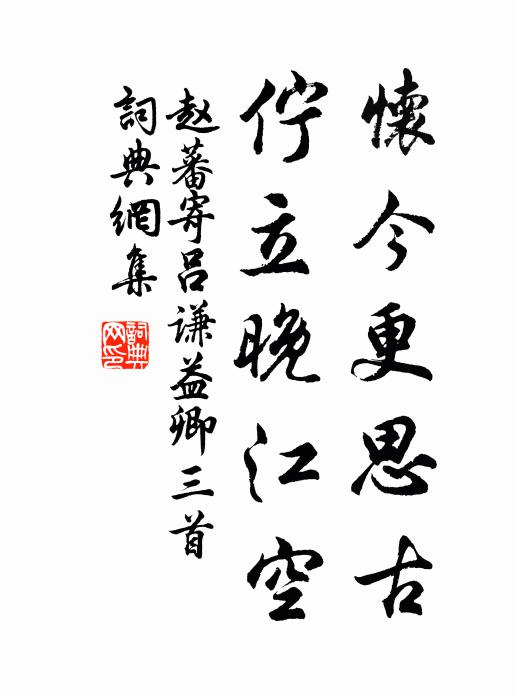 懷今更思古
佇立晚江空
赵蕃寄呂謙益卿三首
詞典網集
詞典网印